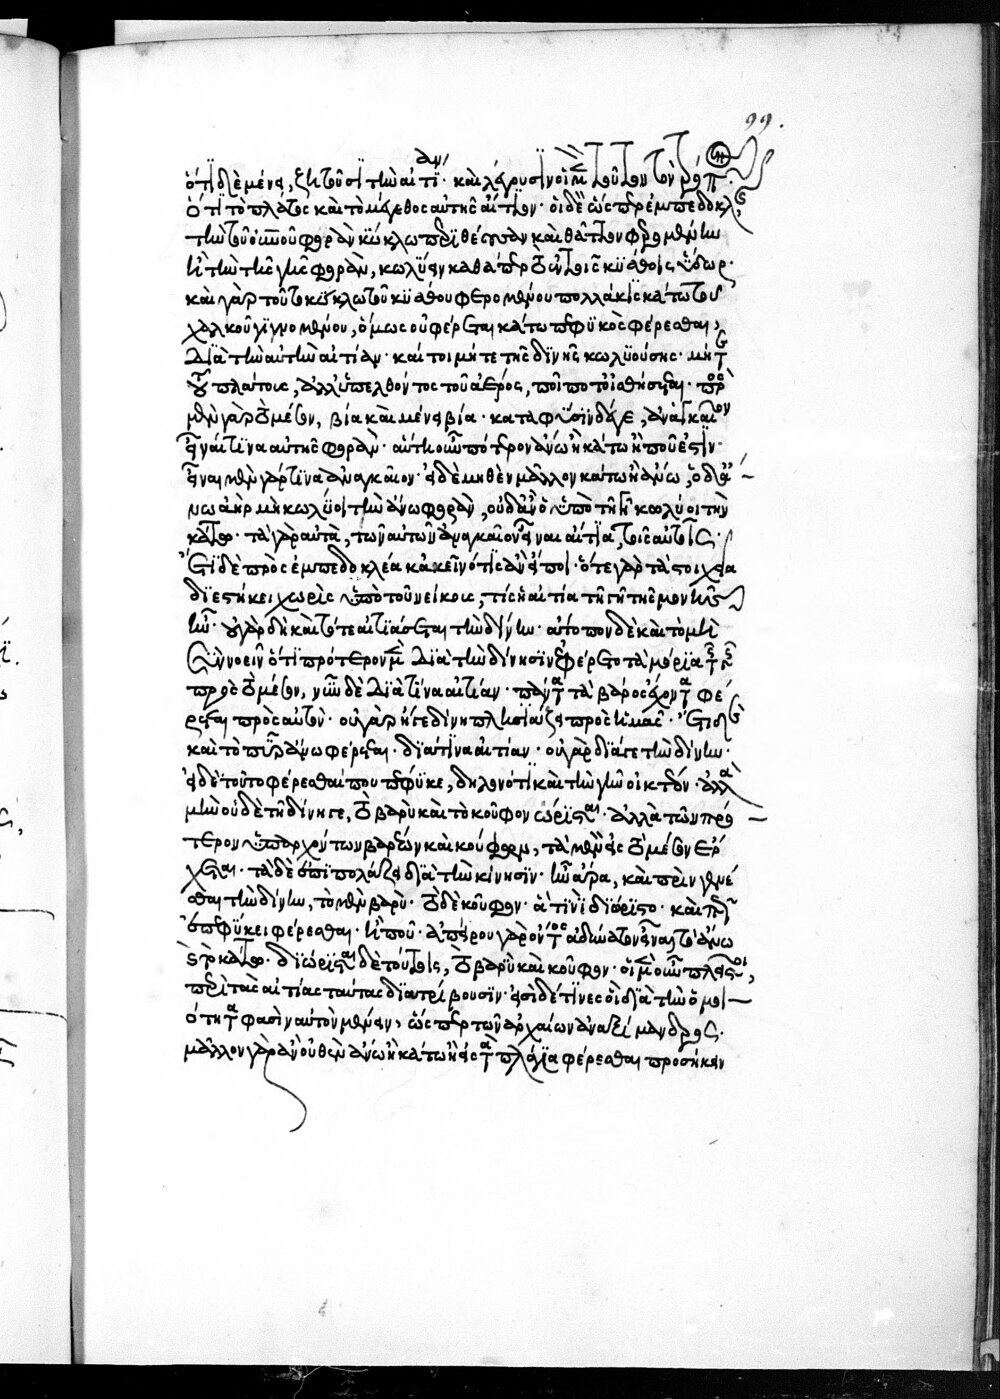 ὅτι δὲ μένει, ζητοῦσι τὴν αἰτίαν· καὶ λέγουσιν οἱ μὲν τοῦτον τὸν τρόπ
ὅτι τὸ πλάτος καὶ τὸ μέγεθος αὐτῆς αἴτιον· οἱ δὲ ὥσπερ ἐμπεδοκλῆς
τὴν τοῦ οὐρανοῦ φορὰν κύκλω περιθέουσαν καὶ θᾶττον φερομένην
τὴν τῆς γῆς φορὰν, κωλύειν καθάπερ τὸ ἐν τοῖς κυάθοις ὕδωρ·
καὶ γὰρ τοῦτο κύκλω τοῦ κυάθου φερομένου πολλάκις κάτω τοῦ
χαλκοῦ γιγνομένου, ὅμως οὐ φέρεται κάτω πεφυκὸς φέρεσθαι,
διὰ τὴν αὐτὴν αἰτίαν· καί τοι μήτε τῆς δίνης κωλυούσης· μήτε
τοῦ πλάτους, ἀλλ' ὑπελθόντος τοῦ ἀέρος, ποῖ ποτ' οἰσθήσεται· πρὸς
μὲν γὰρ τὸ μέσον, βία καὶ μένει βία· κατὰ φύσιν δέ γε, ἀναγκαῖον
εἶναί τινα αὐτῆς φοράν· αὕτη οὖν πότερον ἄνω ἢ κάτω ἢ ποῦ ἐστὶν·
εἶναι μὲν γάρ τινα ἀναγκαῖον· εἰ δὲ μηθὲν μᾶλλον κάτω ἢ ἄνω, ὁ δ' ἄ-
νω ἀὴρ μὴ κωλύει τὴν ἄνω φορὰν, οὐδ' ἂν ὁ ὑπὸ τῆ γῆ κωλύοι τὴν
κάτω· τὰ γὰρ αὐτὰ, τῶν αὐτῶν ἀναγκαῖον εἶναι αἴτια, τοῖς αὐτοῖς·
Ἔτι δὲ πρὸς ἐμπεδοκλέα κἀκεῖνό τις ἂν εἴποι· ὅτε γὰρ τὰ στοιχεῖα
διεστήκει χωρὶς ὑπὸ τοῦ νείκους, τίς ἡ αἰτία τῆ γῆ τῆς μονῆς
ἦν· οὐ γὰρ δὴ καὶ τότε αἰτιάσεται τὴν δίνην· ἄτοπον δὲ καὶ τὸ μὴ
συννοεῖν ὅτι πρότερον μὲν διὰ τὴν δίνησιν ἐφέρετο τὰ μόρια τῆς γῆς
πρὸς τὸ μέσον, νῦν δὲ διὰ τίνα αἰτίαν· πάντα τὰ βάρος ἔχοντα φέ
ρεται πρὸς αὐτήν· οὐ γὰρ ἥ γε δίνη πλησιάζει πρὸς ἡμᾶς· Ἔτι δὲ
καὶ τὸ πῦρ ἄνω φέρεται· διὰ τίνα αἰτίαν· οὐ γὰρ διά γε τὴν δίνην·
εἰ δὲ τοῦτο φέρεσθαί που πέφυκε, δηλονότι καὶ τὴν γῆν οἰητέον· ἀλλὰ
μὴν οὐδὲ τῆ δίνη γε, τὸ βαρὺ καὶ τὸ κοῦφον ὥρισται· ἀλλὰ τῶν πρό-
τερον ὑπαρχόντων βαρέων καὶ κούφων, τὰ μὲν εἰς τὸ μέσον ἔρ
χεται· τὰ δὲ ἐπιπολάζει διὰ τὴν κίνησιν· ἦν ἄρα, καὶ πρὶν γενέ
σθαι τὴν δίνην, τὸ μὲν βαρὺ· τὸ δὲ κοῦφον· ἃ τίνι διώριστο· καὶ πῶς
ἐπεφύκει φέρεσθαι· ἢ ποῦ· ἀπείρου γὰρ ὄντος ἀδύνατον εἶναι τὸ ἄνω
ἢ κάτω· διώρισται δὲ τούτοις, τὸ βαρὺ καὶ κοῦφον· οἱ μὲν οὖν πλεῖστοι,
περὶ τὰς αἰτίας ταύτας διατρίβουσιν· εἰσὶ δέ τινες οἳ διὰ τὴν ὁμοι-
ότητα φασὶν αὐτὴν μένειν, ὥσπερ τῶν ἀρχαίων ἀναξίμανδρος·
μᾶλλον γὰρ ἂν οὐθὲν ἄνω ἢ κάτω ἢ εἰς τὰ πλάγια φέρεσθαι προσήκειν